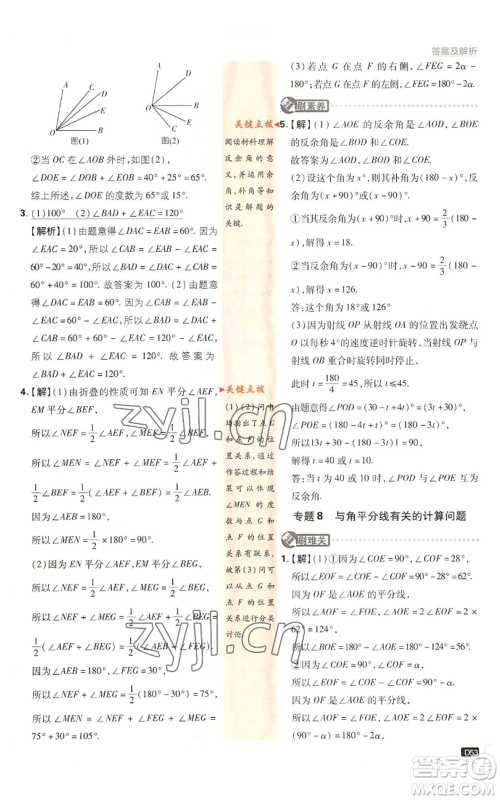 答案及解析
图(1)
图(2)
②当 OC 在∠AOB 外部时,如图(2),
∠DOE = ∠DOB + ∠EOB = 40° + 25° = 65°.
综上所述,∠DOE 的度数为65°或15°.
3. (1)100° (2)∠BAD + ∠EAC = 120°
【解析】(1)由题意得∠DAC = EAB = 60°. 因为∠EAC = 20°,所以∠CAB = ∠EAB - ∠EAC =
60° - 20° = 40°,所以∠BAD = ∠DAC + ∠CAB =
60° + 40° = 100°. 故答案为100°. (2)由题意
得∠DAC = ∠EAB = 60°,因为∠CAB = ∠EAB -
∠EAC = 60° - ∠EAC,所以∠BAD = ∠DAC +
∠CAB = 60° + 60° - ∠EAC = 120° - ∠EAC,所
以∠BAD + ∠EAC = 120°. 故答案为∠BAD +
∠EAC = 120°.
4. 【解】(1)由折叠的性质可知 EN 平分∠AEF,
EM 平分∠BEF,
所以∠NEF = 1/2∠AEF,∠MEF = 1/2∠BEF,
所以∠MEN = ∠NEF + ∠MEF = 1/2∠AEF +
1/2∠BEF = 1/2(∠AEF + ∠BEF) = 1/2∠AEB.
因为∠AEB = 180°,
所以∠MEN = 1/2 × 180° = 90°.
(2)因为 EN 平分∠AEF,EM 平分∠BEG,
所以∠NEF = 1/2∠AEF,∠MEG = 1/2∠BEG,
所以∠NEF + ∠MEG = 1/2∠AEF + 1/2∠BEG =
1/2(∠AEF + ∠BEG) = 1/2(∠AEB - ∠FEG).
因为∠AEB = 180°,∠FEG = 30°,
所以∠NEF + ∠MEG = 1/2(180° - 30°) = 75°,
所以∠MEN = ∠NEF + ∠FEG + ∠MEG =
75° + 30° = 105°.
关键点拨
阅读材料理解反余角的意义,并运用余角、补角等知识是解题的关键.
关键点拨
(1)(2)问中
点 F 的位置关系,因此在作答过程中可以体现∠MEN 的度数与点 G 和点 F 的位置有关联系,故第(3)问可从点 G 和点 F 的位置关系进行分类讨论.
(3)若点 G 在点 F 的右侧,∠FEG = 2α -
180°;若点 G 在点 F 的左侧,∠FEG = 180° - 2α.
刷素养
5. 【解】(1)∠AOE 的反余角是∠AOD,
∠BOE.
故答案为∠AOD,∠BOE.
(2)设这个角为 x°,则补角为(180 - x)°,反余
角为(x + 90)°或(x - 90)°.
①当反余角为(x + 90)°时,x + 90 = 2/3(180 -
x),解得 x = 18.
②当反余角为(x - 90)°时,x - 90 = 2/3(180 -
x),解得 x = 126.
答:这个角为18°或126°
(3)当射线 OP 从射线 OA 的位置出发绕点
O 每秒4°的速度逆时针方向旋转到射线 OB
时,t = 180/4 = 45,此时停止运动.
由题意得∠POD = (30 - t + 4t)° = (30 + 3t)°,
∠POE = (180 - 4t + t)° = (180 - 3t)°,
所以|(30 + 3t) - (180 - 3t)| = 90,
解得 t = 40 或 10.
答:当 t 为40或10时,∠POD 与∠POE 互为
反余角.
专题8 与角平分线有关的计算问题
刷难关
1. 【解】(1)①因为∠COE = 90°,∠COF = 28°,
所以∠EOF = ∠COE - ∠COF = 90° - 28° = 62°.
因为 OF 是∠AOE 的平分线,
所以∠AOE = 2∠EOF = 2 ×
62° = 124°,
所以∠BOE = 180° - ∠AOE =
②因为∠COE = 90°,∠COF = α,
所以∠EOF = ∠COE - ∠COF = 90° - α.
因为 OF 是∠AOE 的平分线,
所以∠AOE = 2∠EOF = 2(90° - α),
所以∠BOE = 180° - ∠AOE = 180° - 2(90° -
α) = 2α.
D53
zyjl.cn
zyjl.cn